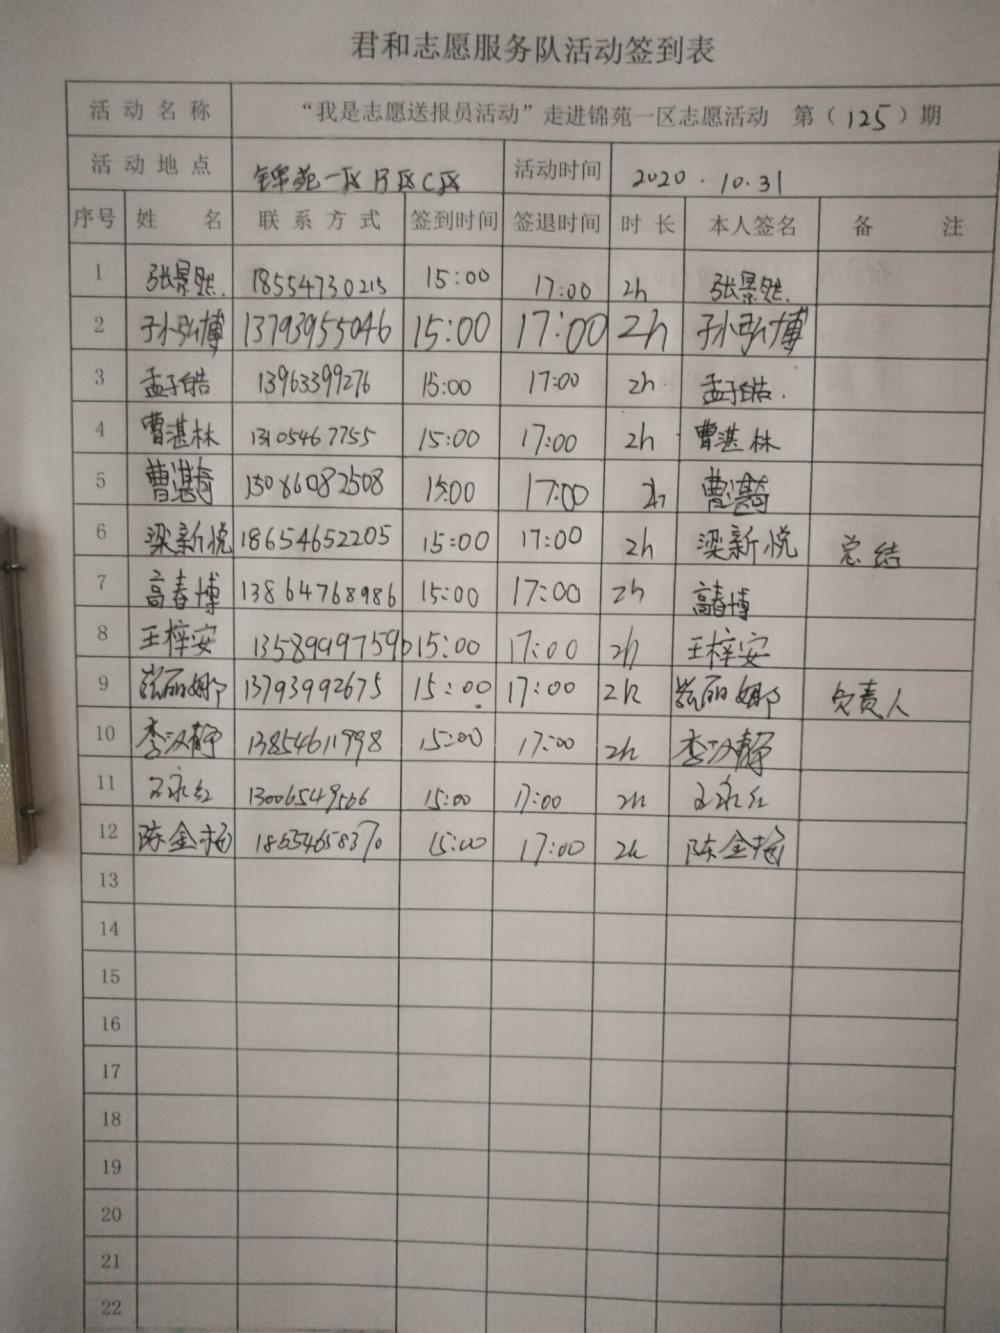 君和志愿服务队活动签到表
活动名称 “我是志愿送报员活动”走进锦苑一区志愿活动 第（125）期
活动地点 锦苑一区B区C区 活动时间 2020.10.31
序号 姓名 联系方式 签到时间 签退时间 时长 本人签名 备注
1 张景然 18554730215 15:00 17:00 2h 张景然
2 孙弘博 13793955046 15:00 17:00 2h 孙弘博
3 孟子皓 13963399276 15:00 17:00 2h 孟子皓
4 曹湛林 13105467755 15:00 17:00 2h 曹湛林
5 15086082508 15:00 17:00 2h
6 梁新悦 18654652205 15:00 17:00 2h 梁新悦 总结
7 高春博 13864768986 15:00 17:00 2h 高春博
8 王梓安 13589997596 15:00 17:00 2h 王梓安
9 丽娜 13793992675 15:00 17:00 2h 丽娜 负责人
10 李汉静 13854611998 15:00 17:00 2h 李汉静
11 永红 13006549566 15:00 17:00 2h 永红
12 陈金梅 18554658370 15:00 17:00 2h 陈金梅
13
14
15
16
17
18
19
20
21
22